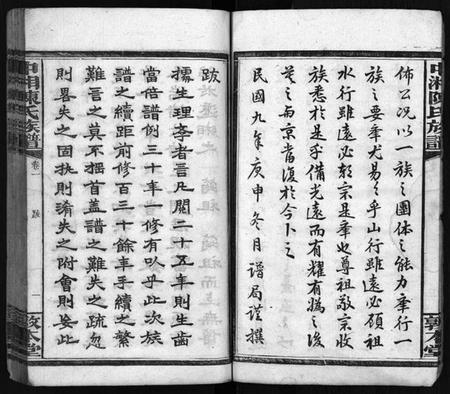 中湘陳氏族譜
敦本堂
佈公況以一族之團体之能力舉行一
族之要舉尤易々乎山行雖遠必顧祖
水行雖遠必朝宗是舉也尊祖敬宗收
族悉於是乎備光遠而有耀有為之後
民國九年庚申冬月譜局謹撰
跋
據生理李者言凡閱二十五年則生齒
當倍譜例三十年一修有以乎此次族
譜之續距前修百三十餘年手續之繁
難言之莫不搖首蓋譜之難失之疏忽
則畧失之固執則淆失之附會則妄此
中湘陳氏族譜
卷二
跋
一
敦本堂